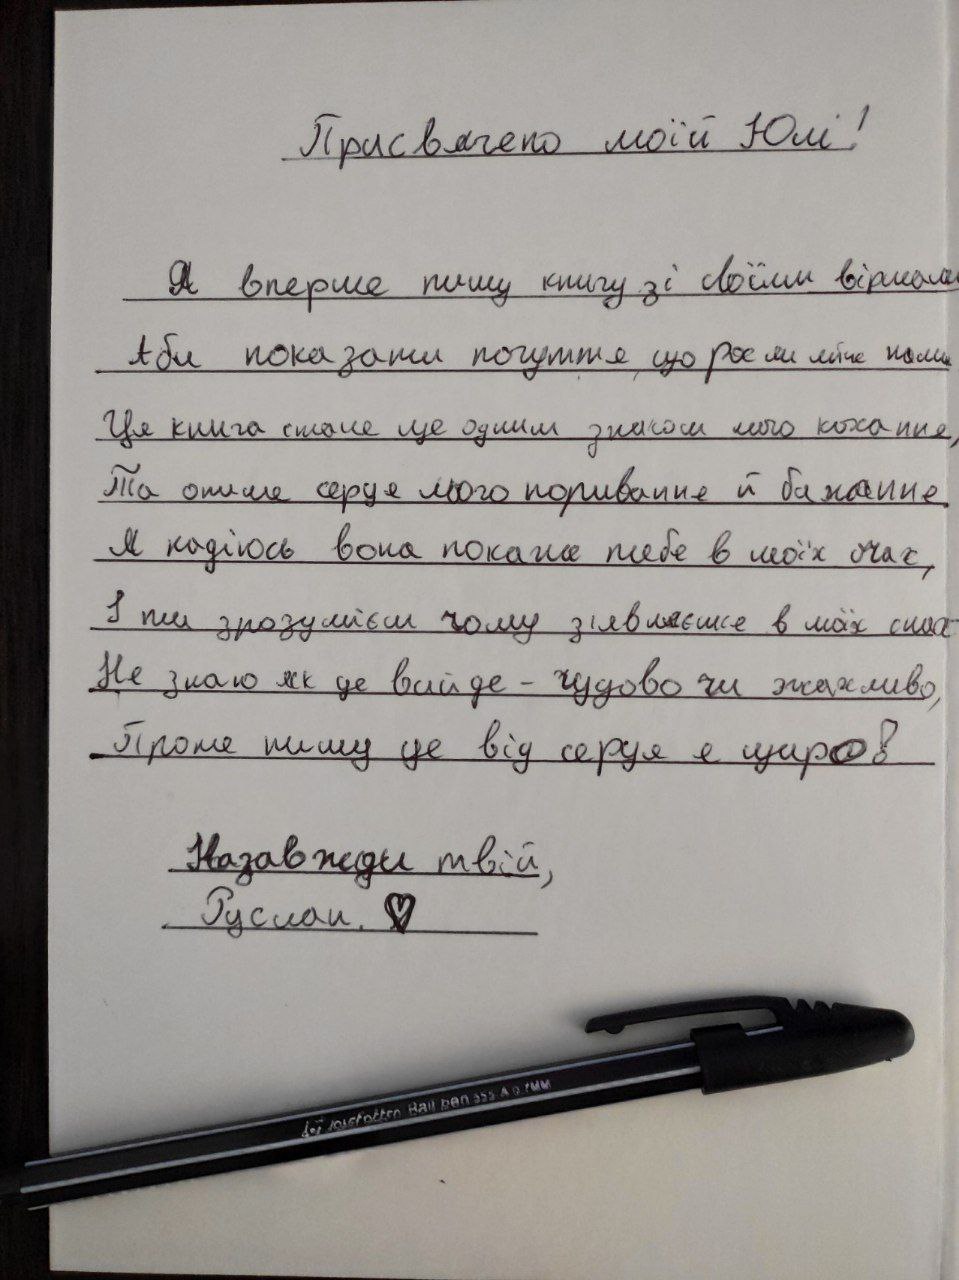 Присвячено моїй Юлі!
Я вперше пишу книгу зі своїми віршами
Аби показати почуття, що росли між нами
Ця книга стане ще одним знаком мого кохання,
Та опише серця мого поривання й бажання
Я надіюсь вона покаже тебе в моїх очах,
І ти зрозумієш чому зʼявляєшся в моїх снах
Не знаю як це вийде - чудово чи жахливо,
Проте пишу це від серця я щиро!
Назавжди твій,
Руслан. ♡
Ball pen 555 A 0.7мм